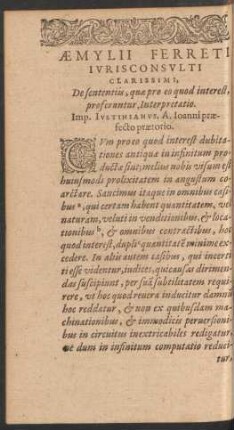 ÆMYLII FERRETI
IVRISCONSVLTI
CLARISSIMI,
De sententiis, quæ pro eo quod interest,
proferuntur, Interpretatio.
Imp. IVSTINIANVS. A. Ioanni præ-
fecto prætorio.
CVm pro eo quod interest dubita-
tiones antiquæ in infinitum pro-
ductæ sint, melius nobis visum est
huiusmodi prolixitatem in angustum co-
arctare. Sancimus itaque in omnibus casi-
bus a, qui certam habent quantitatem, vel
naturam, veluti in venditionibus, & loca-
tionibus b, & omnibus contractibus, hoc
quod interest, dupli c quantitatē minime ex-
cedere. In aliis autem casibus, qui incer-
ti esse videntur, iudices, qui causas dirimen-
das suscipiunt, per suā subtilitatem requi-
rere, vt hoc quod reuera inducitur damnū
hoc reddatur, & non ex quibusdam ma-
chinationibus, & immodicis peruersioni-
bus in circuitus inextricabiles redigatur,
ne dum in infinitum computatio reduci-
tur,